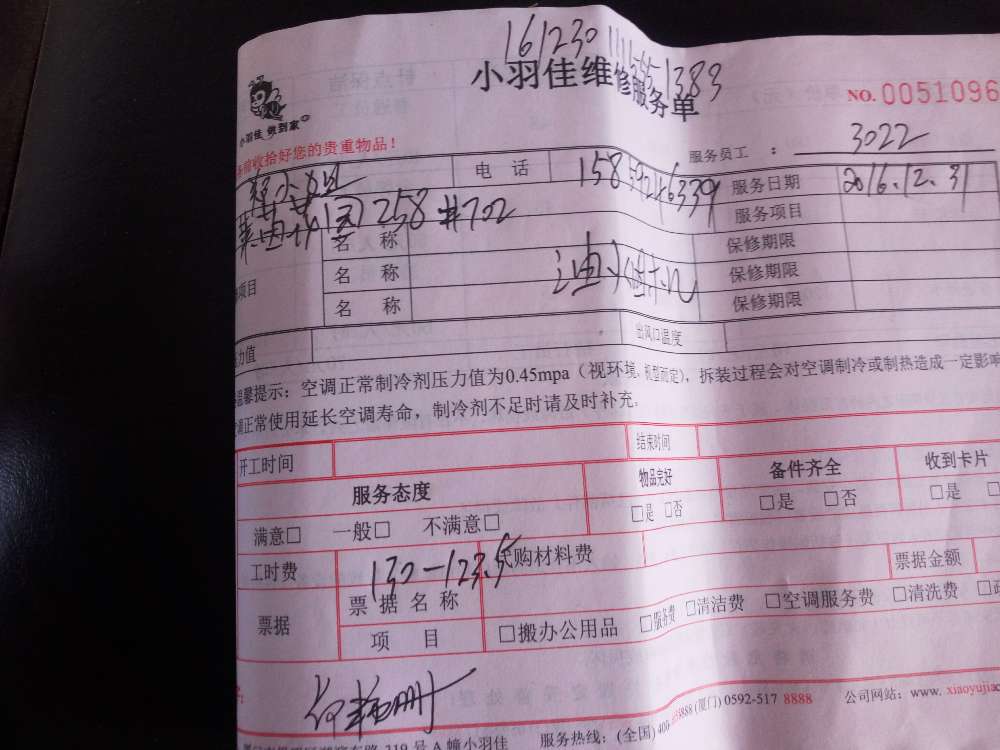 161230
小羽佳维修服务单
NO. 0051096
小羽佳 做到家
收拾好您的贵重物品！
服务员工 ： 3022
电 话
服务日期 2016.12.31
258#702
服务项目
名 称
保修期限
项目 名 称 油烟机
保修期限
名 称
保修期限
力值
出风口温度
温馨提示：空调正常制冷剂压力值为0.45mpa（视环境、机型而定），拆装过程会对空调制冷或制热造成一定影响
调正常使用延长空调寿命，制冷剂不足时请及时补充。
开工时间
结束时间
服务态度
物品完好
备件齐全
收到卡片
满意□ 一般□ 不满意□
□是 □否
□是 □否
□是
工时费 130-123.5
代购材料费
票据 票 据 名 称
票据金额
项 目
□搬办公用品 □服务费 □清洁费 □空调服务费 □清洗费
319号A幢小羽佳
服务热线：(全国) 400
8888 (厦门) 0592-517 8888
公司网站：www. xiaoyujia